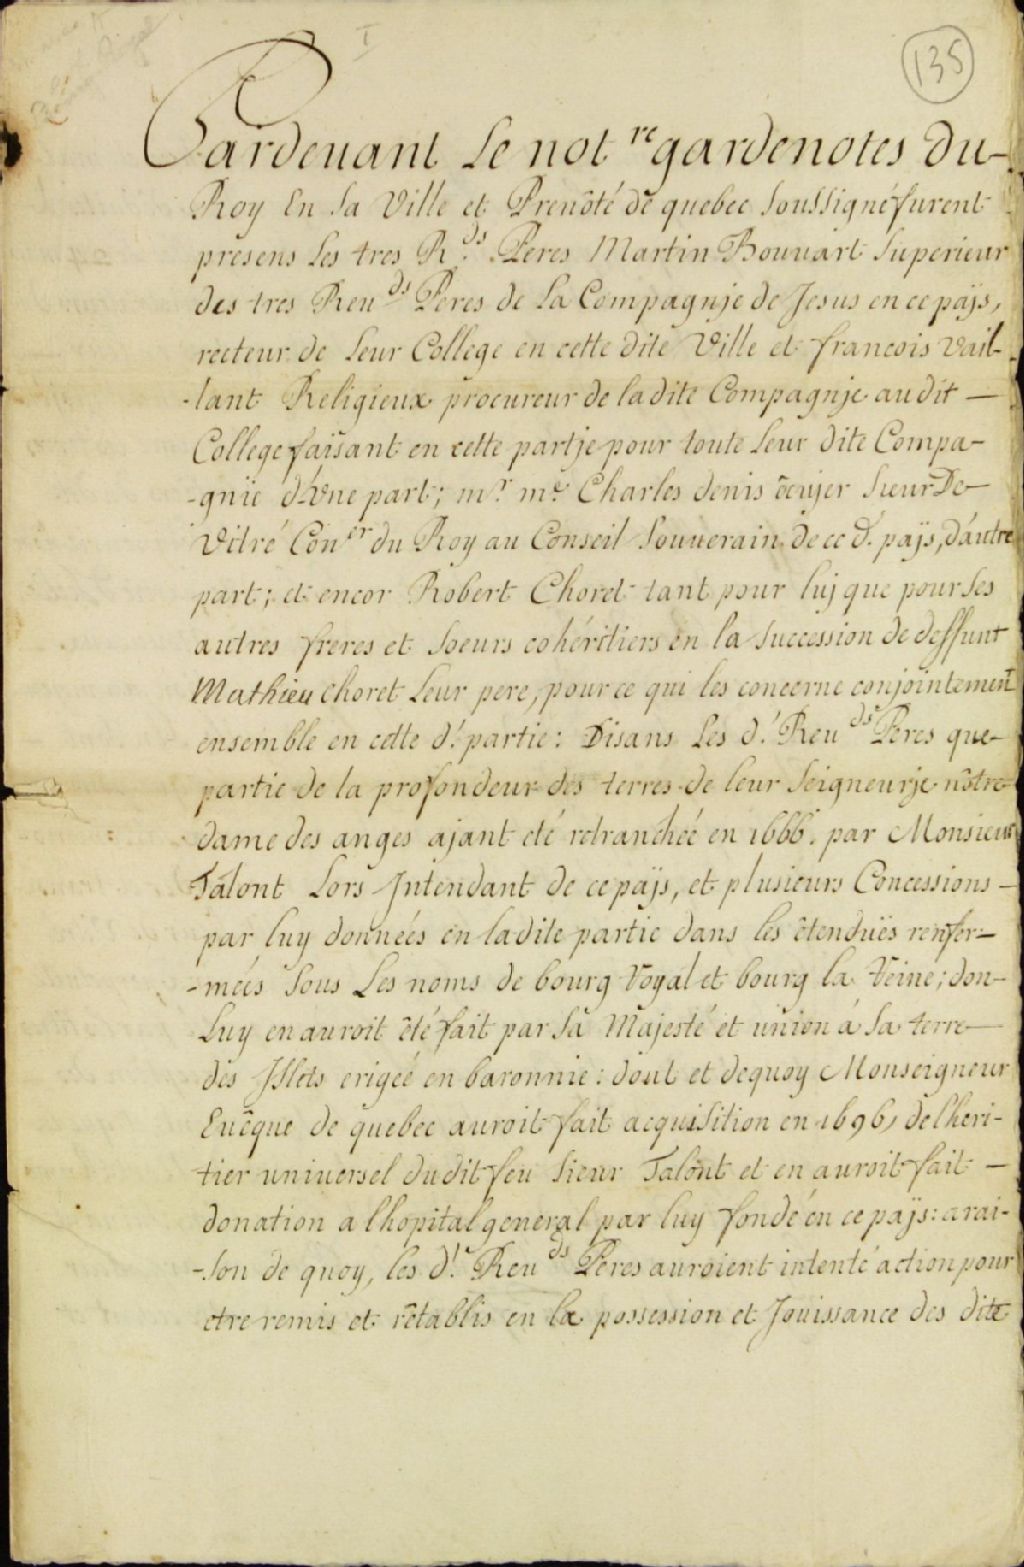 I
135
Pardeuant Le not.re gardenotes du-
Roy En sa Ville et Preuôté de quebec soussigné furent
presens Les tres R.ds Peres Martin Bouuart Superieur
des tres Reu.ds Peres de La Compagnje de Jesus en ce päys,
recteur de Leur College en cette dite Ville et francois Vail-
-lant Religieux procureur de ladite Compagnje audit —
College faisant en cette partje pour toute Leur dite Compa-
-gnie d'Vne part; m.r m.e Charles denis ecujer Sieur De
Vitré Con.er du Roy au Conseil Souuerain de ce d. päys, d'autre
part; et encor Robert Choret tant pour luj que pour Ses
autres freres et soeurs cohéritiers en la succession de deffunt
Mathieu choret Leur pere, pour ce qui les concerne conjointement
ensemble en cette d. partie: Disans Les d. Reu.ds Peres que
partie de la profondeur des terres de leur Seigneurje nôtre
dame des anges ajant eté retranchée en 1666. par Monsieur
Talont Lors Jntendant de ce päys, et plusieurs Concessions —
par luy données en ladite partie dans les étendües renfer-
-mées Sous Les noms de bourg Royal et bourg la Reine; don-
Luy en auroit été fait par Sa Majesté et union à Sa terre
des Jslets erigéé en baronnie: dont et dequoy Monseigneur
Euêque de quebec auroit fait acquisition en 1696, de lheri-
tier uniuersel dudit feu Sieur Talont et en auroit fait —
donation a lhopital general par luy fondé en ce päys: a rai-
-son de quoy, les d.ts Reu.ds Peres auroient intenté action pour
etre remis et rétablis en la possession et Jouissance des dite